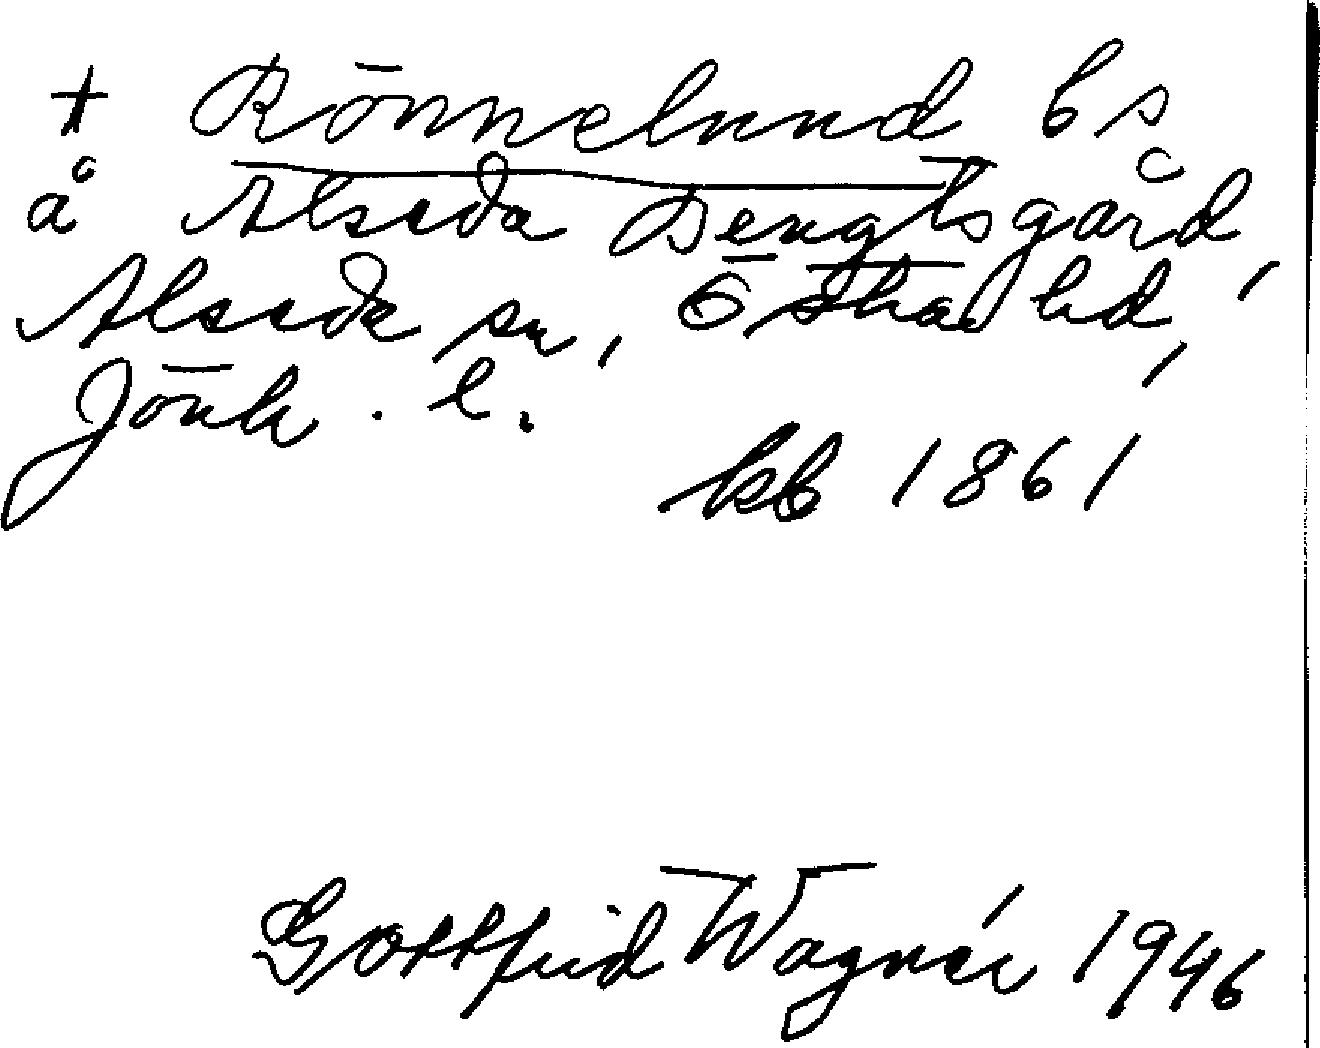 + Rönnelund bs
å Alseda Bengtsgård,
Alseda sn, Östra hd,
Jönk. l.
kb 1861
Gottfrid Wagnér 1946